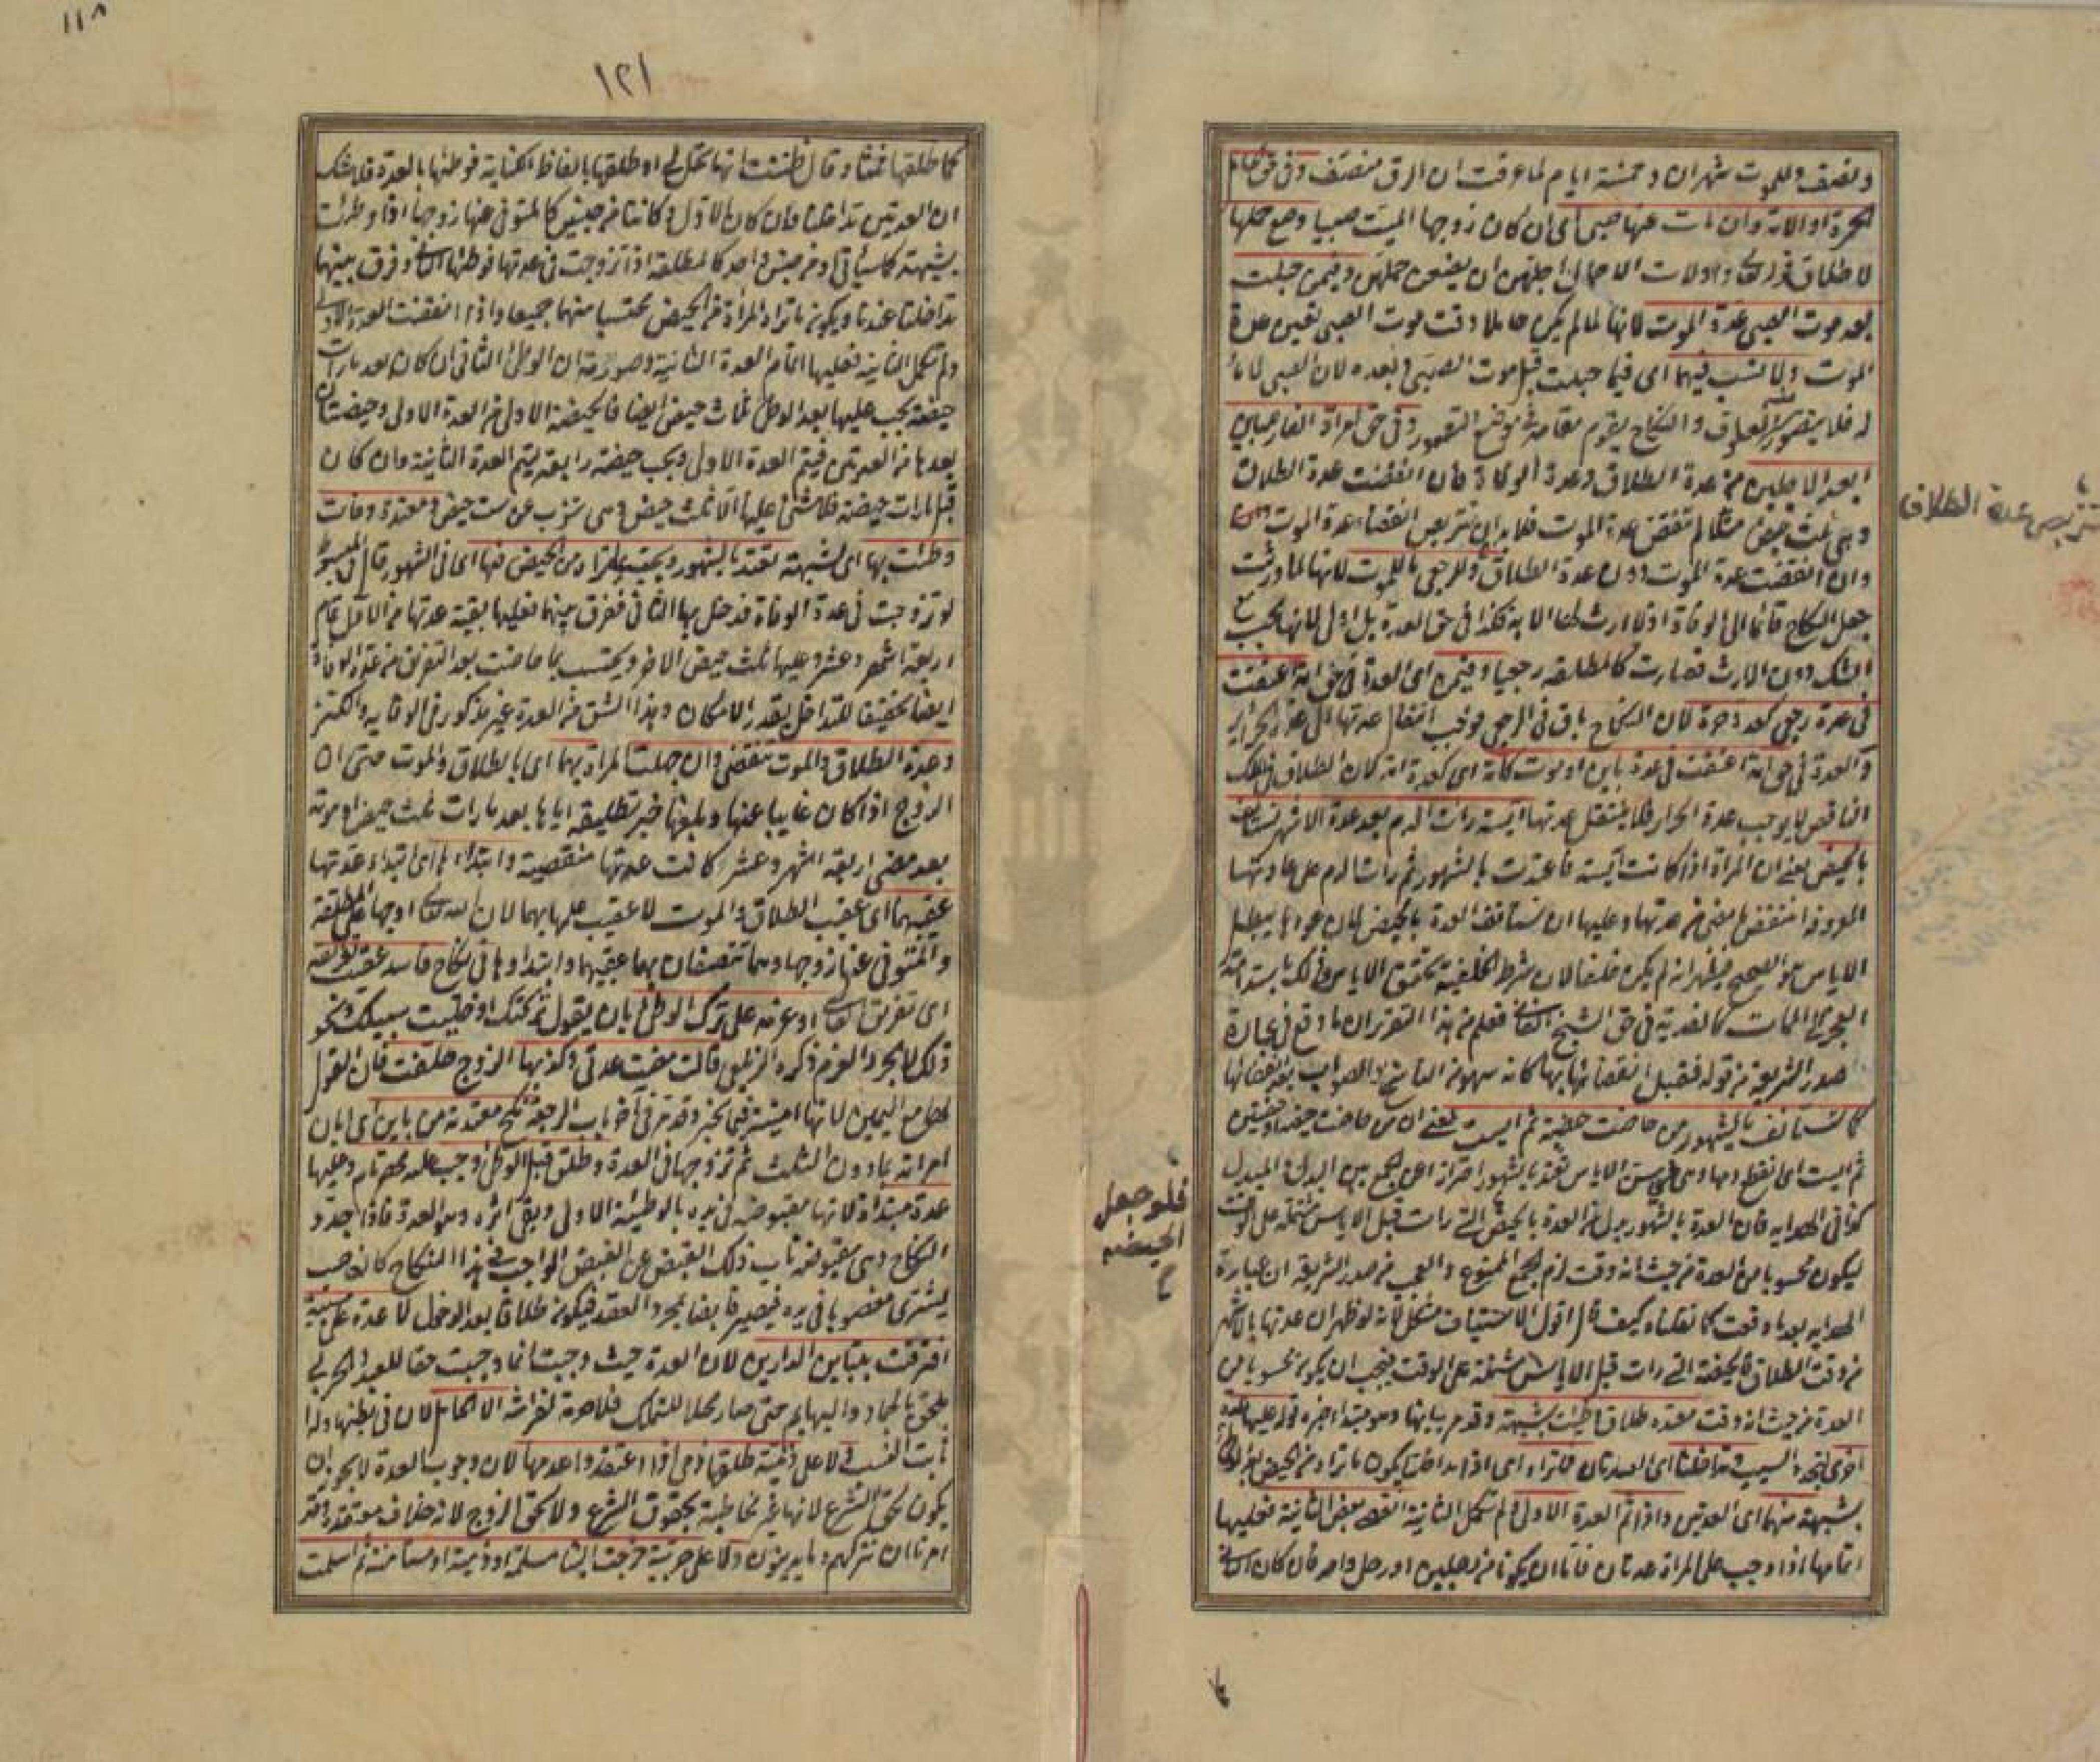 ونصف وللموت شهران وخمسة ايام لما عرفت ان الرق منصف وفي حق الحامل
الحرة او الامة وان مات عنها صبي اى ان كان زوجها الميت صبيا وضع حملها
لاطلاق قوله تعالى واولات الاحمال اجلهن ان يضعن حملهن وفيمن حبلت
بعد موت الصبي عدة الموت لانها لما لم يكن حاملا وقت موت الصبي تعين عدة
الموت ولا نسب فيهما اى فيما حبلت قبل موت الصبي وبعده لان الصبي لا ماء
له فلا يتصور منه العلوق والنكاح يقوم مقامه في موضع التصور وفي حق امراة الفار
ابعد الاجلين من عدة الطلاق وعدة الوفاة فان انقضت عدة الطلاق
وهي ثلث حيض مثلا لم تنقض عدة الموت فلا بد ان تتربص انقضاء عدة الموت
وان انقضت عدة الموت دون عدة الطلاق وللرجعي ما للموت لانها لما ورثت
جعل النكاح قائما الى الوفاة اذ لا ارث لها الا به فكذا في حق العدة بل اولى لانها تجب مع
الشك دون الارث فصارت كالمطلقة رجعيا وفيمن اى العدة في حق امة اعتقت
في عدة رجعي كعدة حرة لان النكاح باق في الرجعي فوجب انتقال عدتها الى عدة الحرائر
والعدة في حق امة اعتقت في عدة باين او موت كامة اى كعدة امة لان الطلاق في الملك
الناقص لا يوجب عدة الحرائر فلا ينتقل عدتها آيسة رات الدم بعد عدة الاشهر تستانف
بالحيض يعنى ان المراة اذا كانت آيسة فاعتدت بالشهور ثم رات الدم على عادتها
انتقض ما مضى من عدتها وعليها ان تستانف العدة بالحيض لان عودها يبطل
الاياس هو الصحيح فيظهر انه لم يكن خلفا لان شرط الخلفية تحقق الاياس وذلك باستدامة
العجز الى الممات كالفدية في حق الشيخ الفاني فعلم من هذا التقرير ان ما وقع في عبارة
صدر الشريعة من قوله فقبل انقضائها كانه سهو من الناسخ والصواب بعد انقضائها
كما تستانف بالشهور من حاضت حيضة ثم ايست يعنى ان من حاضت حيضة او حيضتين
ثم ايست اى انقطع دمها وهى في سن الاياس تعتد بالشهور احترازا عن الجمع بين البدل والمبدل
كذا في الهداية فان العدة بالشهور بدل من العدة بالحيض التى رات قبل الاياس مشتملة على الوقت
ليكون محسوبا من العدة من حيث انه وقت لزم الجمع الممنوع والعجب من صدر الشريعة ان عبارة
الهداية بعد ما وقعت كما نقلناه كيف قال اقول الاستيناف مشكل لانه لو ظهر ان عدتها بالاشهر
من وقت الطلاق فالحيضة التى رات قبل الاياس مشتملة على الوقت فيجب ان يكون محسوبا من
العدة من حيث انه وقت معتدة طلاق وطئت بشبهة وقد مر بيانها وهو مبتدا خبره قوله عليها عدة
اخرى لتجدد السبب وتداخلتا اى العدتان فما تراه اى اذا تداخلتا يكون ما تراه من الحيض بعد الوطئ
بشبهة منهما اى العدتين واذا تم العدة الاولى ولم تكمل الثانية انقضى بعض الثانية فعليها
اتمامها اذا وجب على المراة عدتان فاما ان يكونا من رجلين او رجل واحد فان كان الثانى
تتربص عدة الطلاق
فلو جعل
الحيضة
١١٨
١٢١
كما طلقها ثلثا وقال ظننت انها تحل لى او طلقها بالفاظ الكناية فوطئها بالعدة فلا شك
ان العدتين تداخلتا وان كان الاول وكانتا من جنسين كالمتوفى عنها زوجها اذا وطئت
بشبهة كما سيأتي او من جنس واحد كالمطلقة اذا تزوجت في عدتها فوطئها الثانى وفرق بينهما
تداخلتا عندنا ويكون ما تراه المراة من الحيض محتسبا منهما جميعا واذا انقضت العدة الاولى
ولم تكمل الثانية فعليها اتمام العدة الثانية وصورته ان الوطئ الثاني ان كان بعد ما رات
حيضة يجب عليها بعد الوطئ ثلث حيض ايضا فالحيضة الاولى من العدة الاولى وحيضتان
بعدها من العدتين فيتم العدة الاولى ويجب حيضة رابعة ليتم العدة الثانية وان كان
قبل ما رات حيضة فلا شئ عليها الا ثلث حيض وهى تنوب عن ست حيض ومعتدة وفات
وطئت بها اى بشبهة تعتد بالشهور ويحتسب ما تراه من الحيض فيها اى في الشهور قال في المبسوط
لو تزوجت في عدة الوفاة فدخل بها الثاني ففرق بينهما فعليها بقية عدتها من الاول تمام
اربعة اشهر وعشر وعليها ثلث حيض للاخر ويحتسب بما حاضت بعد التفريق من عدة الوفاة
ايضا تحقيقا للتداخل بقدر الامكان وهذا الشق من العدة غير مذكور في الوقاية والكنز
وعدة الطلاق والموت تنقضى وان جهلت المراة بهما اى بالطلاق والموت حتى ان
الزوج اذا كان غايبا عنها وبلغها خبر تطليقه اياها بعد ما رات ثلث حيض او موته
بعد مضى اربعة اشهر وعشر كانت عدتها منقضية وابتداؤها اى ابتداء عدتها
عقيبهما اى عقيب الطلاق والموت لا عقيب علمها بهما لان الله تعالى اوجبها على المطلقة
والمتوفى عنها زوجها وهما تتصفان بهما عقيبهما وابتداؤها في نكاح فاسد عقيب تفريقه
اى تفريق القاضى او عزمه على ترك الوطئ بان يقول تركتك او خليت سبيلك ونحو
ذلك لا بمجرد العزم ذكره الزيلعي قالت مضت عدتى وكذبها الزوج حلفت فان القول
لها مع اليمين لانها امينة في الخبر وقد مر في آخر باب الرجعة نكح معتدته من باين اى ابان
امراته بما دون الثلث ثم تزوجها في العدة وطلق قبل الوطئ وجب عليه مهر تام وعليها
عدة مبتداة لانها مقبوضة في يده بالوطئة الاولى وبقي اثره وهو العدة فاذا جدد
النكاح وهى مقبوضة ناب ذلك القبض عن القبض الواجب في هذا النكاح كالغاصب
يشترى مغصوبا في يده فيصير قابضا بمجرد العقد فيكون طلاقا بعد الدخول لا عدة على مسبية
افترقت بتباين الدارين لان العدة حيث وجبت انما وجبت حقا للعبد والحربى
ملحق بالجماد والبهايم حتى صار محلا للتملك فلا حرمة لفراشه الا الحامل لان في بطنها ولدا
ثابت النسب ولا على ذمية طلقها ذمي اذا اعتقدوا عدمها لان وجوب العدة لا يجوز ان
يكون لحق الشرع لانها غير مخاطبة بحقوق الشرع ولا لحق الزوج لانه خلاف معتقده وقد
امرنا ان نتركهم وما يدينون ولا على حربية خرجت الينا مسلمة او ذمية او مستامنة ثم اسلمت